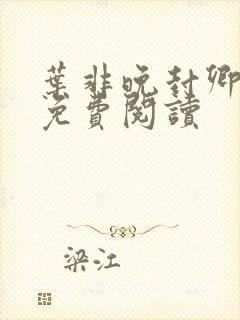 葉非晚封卿
免費閱讀
梁江